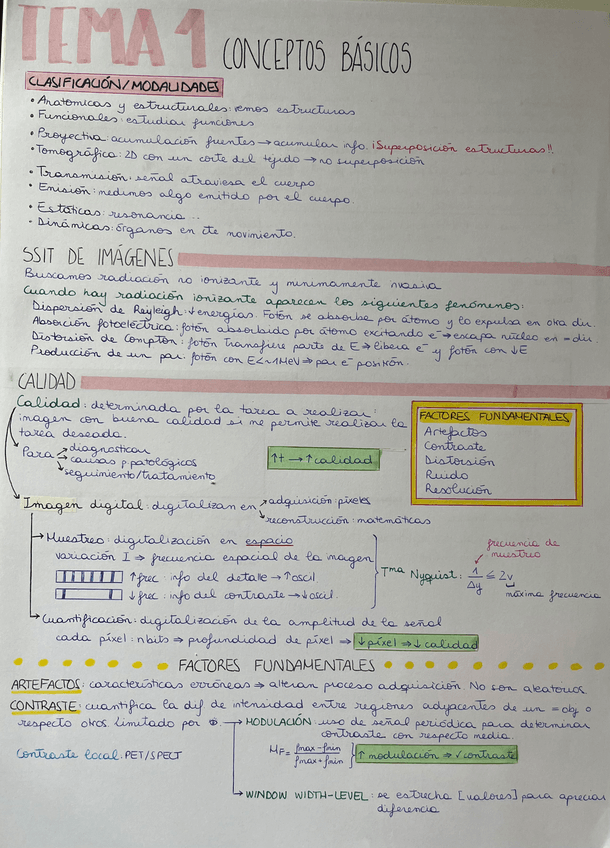 TEMA 1 CONCEPTOS BÁSICOS
CLASIFICACIÓN/MODALIDADES
• Anatomicas y estructurales: vemos estructuras
• Funcionales: estudian funciones
• Proyectiva: acumulación fuentes → acumular info. ¡Superposición estructuras!!
• Tomográfica: 2D con un corte del tejido → no superposición
• Transmisión: señal atraviesa el cuerpo
• Emisión: medimos algo emitido por el cuerpo.
• Estáticas: resonancia...
• Dinámicas: órganos en cte movimiento.
SSIT DE IMÁGENES
Buscamos radiación no ionizante y minimamente nvasiva
Cuando hay radiación ionizante aparecen los siguientes fenómenos:
Dispersión de Reyleigh: ↓energias. Fotón se absorbe por átomo y lo expulsa en otra dir.
Absorción fotoeléctrica: fotón absorbido por átomo excitando e⁻ → escapa núcleo en = dir
Distorsión de Compton: fotón transfiere parte de E ⇒ libera e⁻ y fotón con ↓E
Producción de un par: fotón con E<~1MeV ⇒ par e⁻ positrón.
CALIDAD
Calidad: determinada por la tarea a realizar:
imagen con buena calidad si me permite realizar la
tarea deseada.
Para → diagnosticar
→ causas p.patológicos
→ seguimiento/tratamiento
↑t → ↑calidad
FACTORES FUNDAMENTALES
Artefactos
Contraste
Distorsión
Ruido
Resolución
Imagen digital: digitalizan en → adquisición: píxeles
→ reconstrucción: matemáticas
→ Muestreo: digitalización en espacio
variación I ⇒ frecuencia espacial de la imagen
↑frec: info del detalle → ↑oscil.
↓frec: info del contraste → ↓oscil.
Tma Nyquist: 1/Δy ≤ 2v
frecuencia de muestreo
máxima frecuencia
→ Cuantificación: digitalización de la amplitud de la señal
cada píxel: n bits ⇒ profundidad de píxel ⇒ ↓píxel ⇒ ↓calidad
FACTORES FUNDAMENTALES
ARTEFACTOS: características erróneas ⇒ alteran proceso adquisición. No son aleatorios.
CONTRASTE: cuantifica la dif de intensidad entre regiones adyacentes de un = obj o
respecto otros. Limitado por Φ. → MODULACIÓN: uso de señal periódica para determinar
contraste con respecto media.
Contraste local: PET/SPECT
MF = fmax - fmin / fmax + fmin } ↑ modulación ⇒ ✓contraste
→ WINDOW WIDTH-LEVEL: se estrecha [valores] para apreciar
diferencia